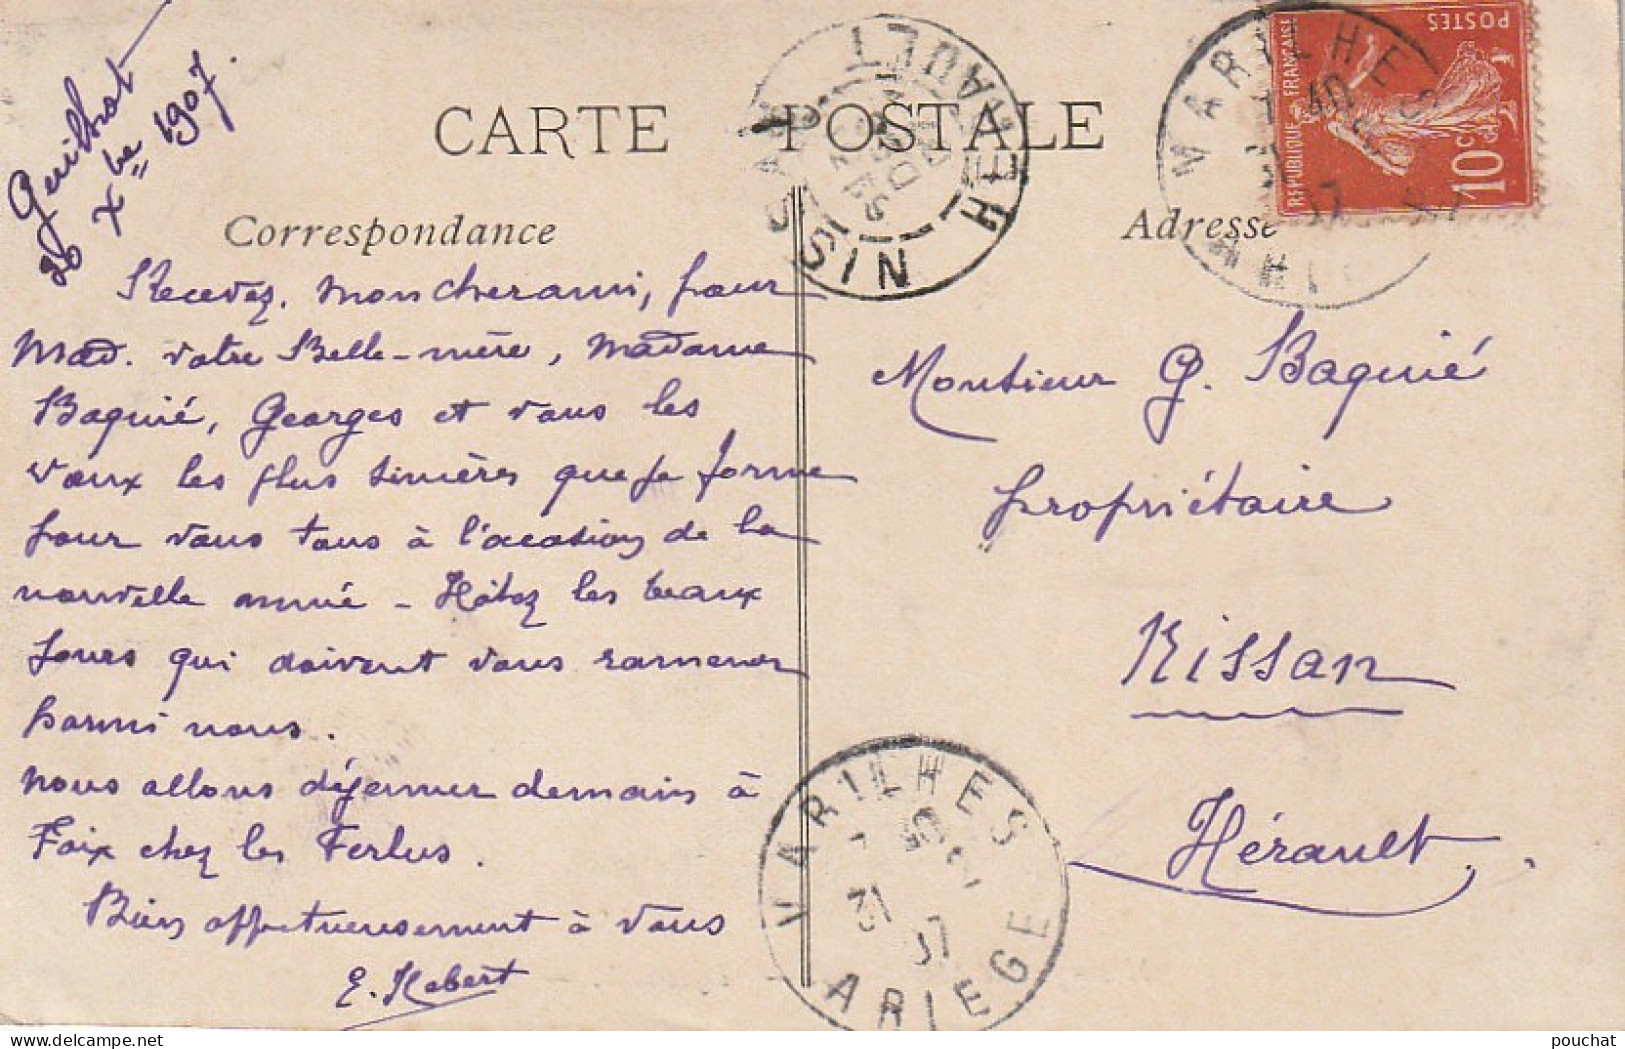 Guilhot
26 Xbre 1907.
CARTE POSTALE
Correspondance
Adresse
Recevez, mon cher ami, pour
Mad. votre Belle-mère, Madame
Baquié, Georges et vous les
vœux les plus sincères que je forme
pour vous tous à l'occasion de la
nouvelle année - Hâtez les beaux
jours qui doivent vous ramener
parmi nous.
Nous allons déjeuner demain à
Foix chez les Ferlus.
Bien affectueusement à vous
E. Hebert
POSTES
REPUBLIQUE FRANÇAISE
10c
VARILHES
NISSAN HERAULT
Monsieur G. Baquié
propriétaire
Nissan
Hérault.
VARILHES
31
07
ARIEGE
pouchat